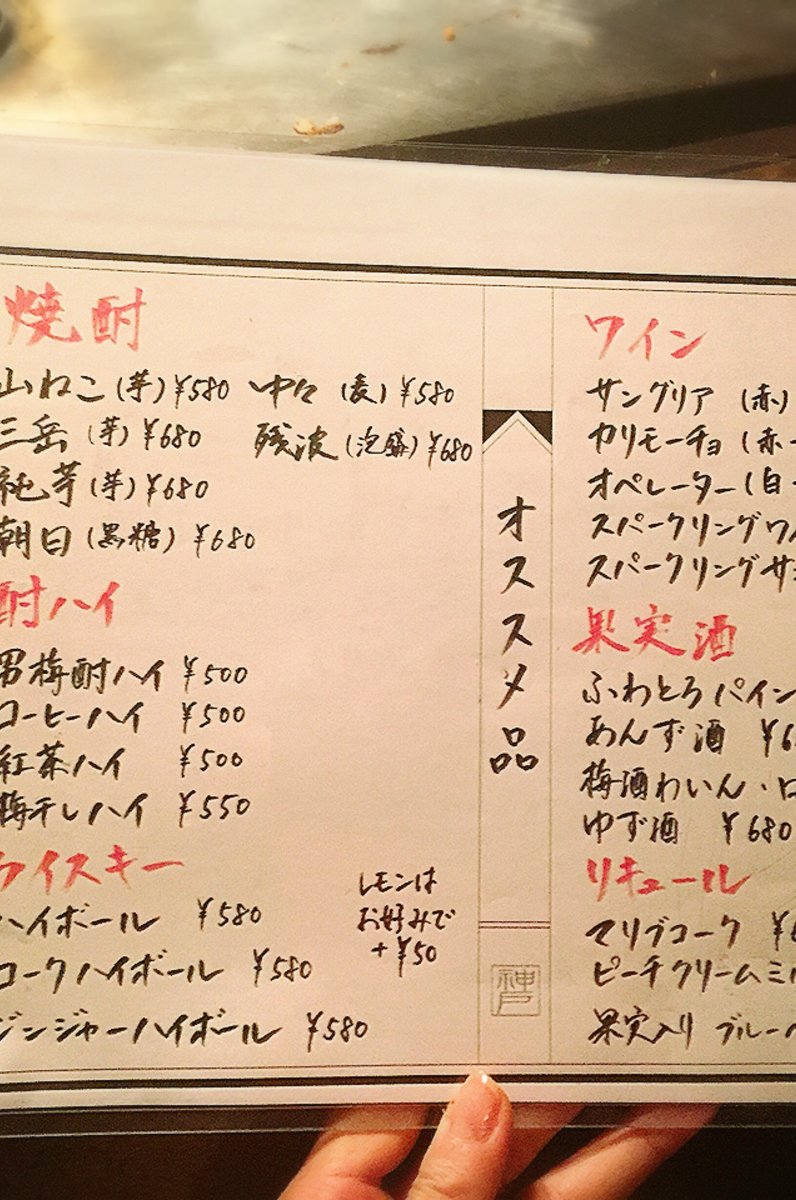 焼酎
山ねこ(芋)¥580 中々(麦)¥580
三岳(芋)¥680 残波(泡盛)¥680
純芋(芋)¥680
朝日(黒糖)¥680
酎ハイ
男梅酎ハイ ¥500
コーヒーハイ ¥500
紅茶ハイ ¥500
梅干しハイ ¥550
ウイスキー
ハイボール ¥580
コークハイボール ¥580
ジンジャーハイボール ¥580
レモンは
お好みで
+¥50
オススメ品
神戸
ワイン
サングリア(赤)
カリモーチョ(赤
オペレーター(白
スパークリングワ
スパークリングサ
果実酒
ふわとろパイン
あんず酒 ¥6
梅酒わいん・ロ
ゆず酒 ¥680
リキュール
マリブコーク ¥6
ピーチクリームミ
果実入りブルー